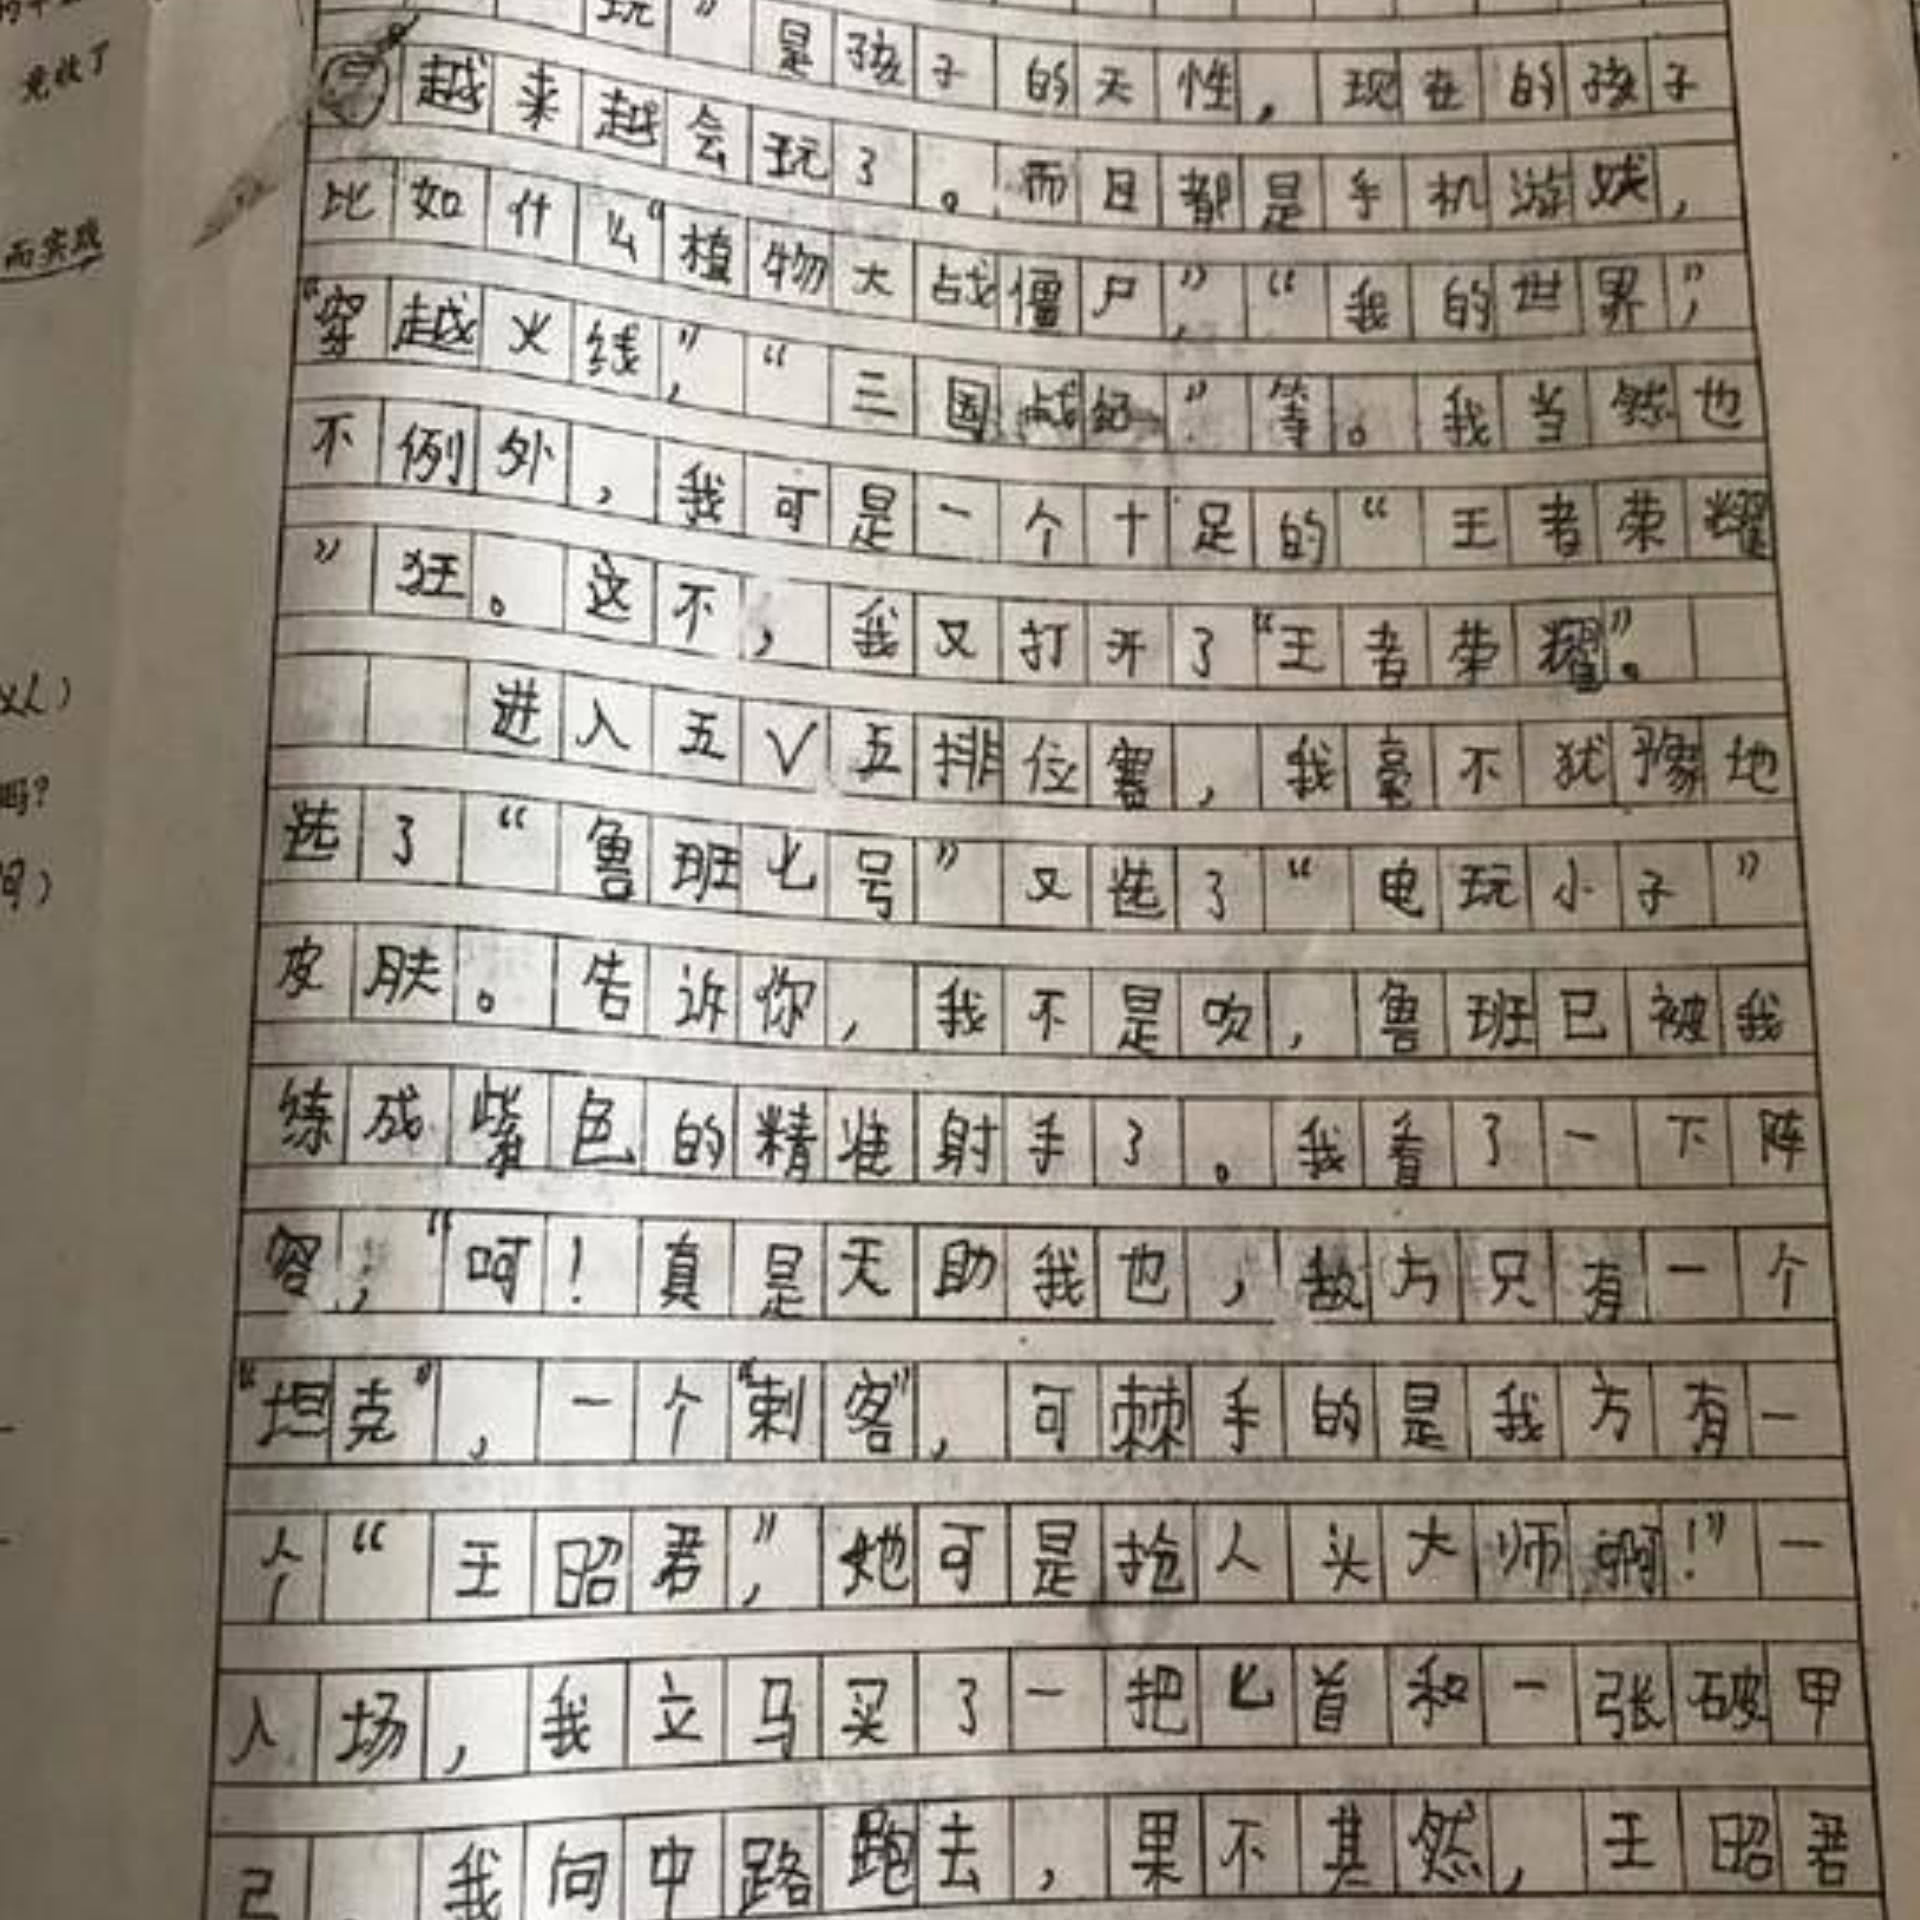 玩”是孩子的天性，现在的孩子
越来越会玩了。而且都是手机游戏，
比如什么“植物大战僵尸”，“我的世界”，
“穿越火线”，“三国战纪”等。我当然也
不例外，我可是一个十足的“王者荣耀
”狂。这不，我又打开了“王者荣耀”。
进入五V五排位赛，我毫不犹豫地
选了“鲁班七号”又选了“电玩小子”
皮肤。告诉你，我不是吹，鲁班已被我
练成紫色的精准射手了。我看了一下阵
容，“呵！真是天助我也，敌方只有一个
“坦克”，一个“刺客”，可棘手的是我方有一
个“王昭君”，她可是抢人头大师啊！”一
入场，我立马买了一把匕首和一张破甲
弓，我向中路跑去，果不其然，王昭君
竟收了
而实战
吗？